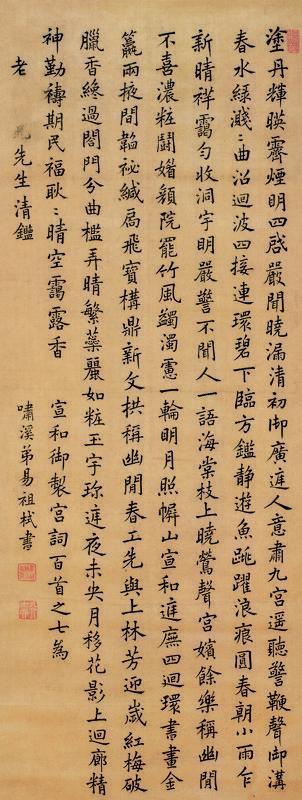 塗丹輝暎霽煙明四啟嚴閽曉漏清初御廣庭人意肅九宮遥聽警鞭聲御溝
春水緑濺〻曲沼迴波四接連環碧下臨方鑑静遊魚跳躍浪痕圓春朝小雨乍
新晴祥靄勻收洞宇明嚴警不聞人一語海棠枝上曉鶯聲宮嬪餘樂稱幽閒
不喜濃粧鬭媚顔院罷竹風蠲濁慮一輪明月照幈山宣和庭廡四迴環書畫金
籯兩掖間韞祕緘扃飛寶構鼎新文拱稱幽閒春工先與上林芳迎歲紅梅破
臘香絶過閤門兮曲檻弄晴繁蘂麗如粧玉宇珎庭夜未央月移花影上迴廊精
神勤禱期民福耿〻晴空靄露香 宣和御製宮詞百首之七為
老 先生清鑑
嘯溪弟易祖栻書